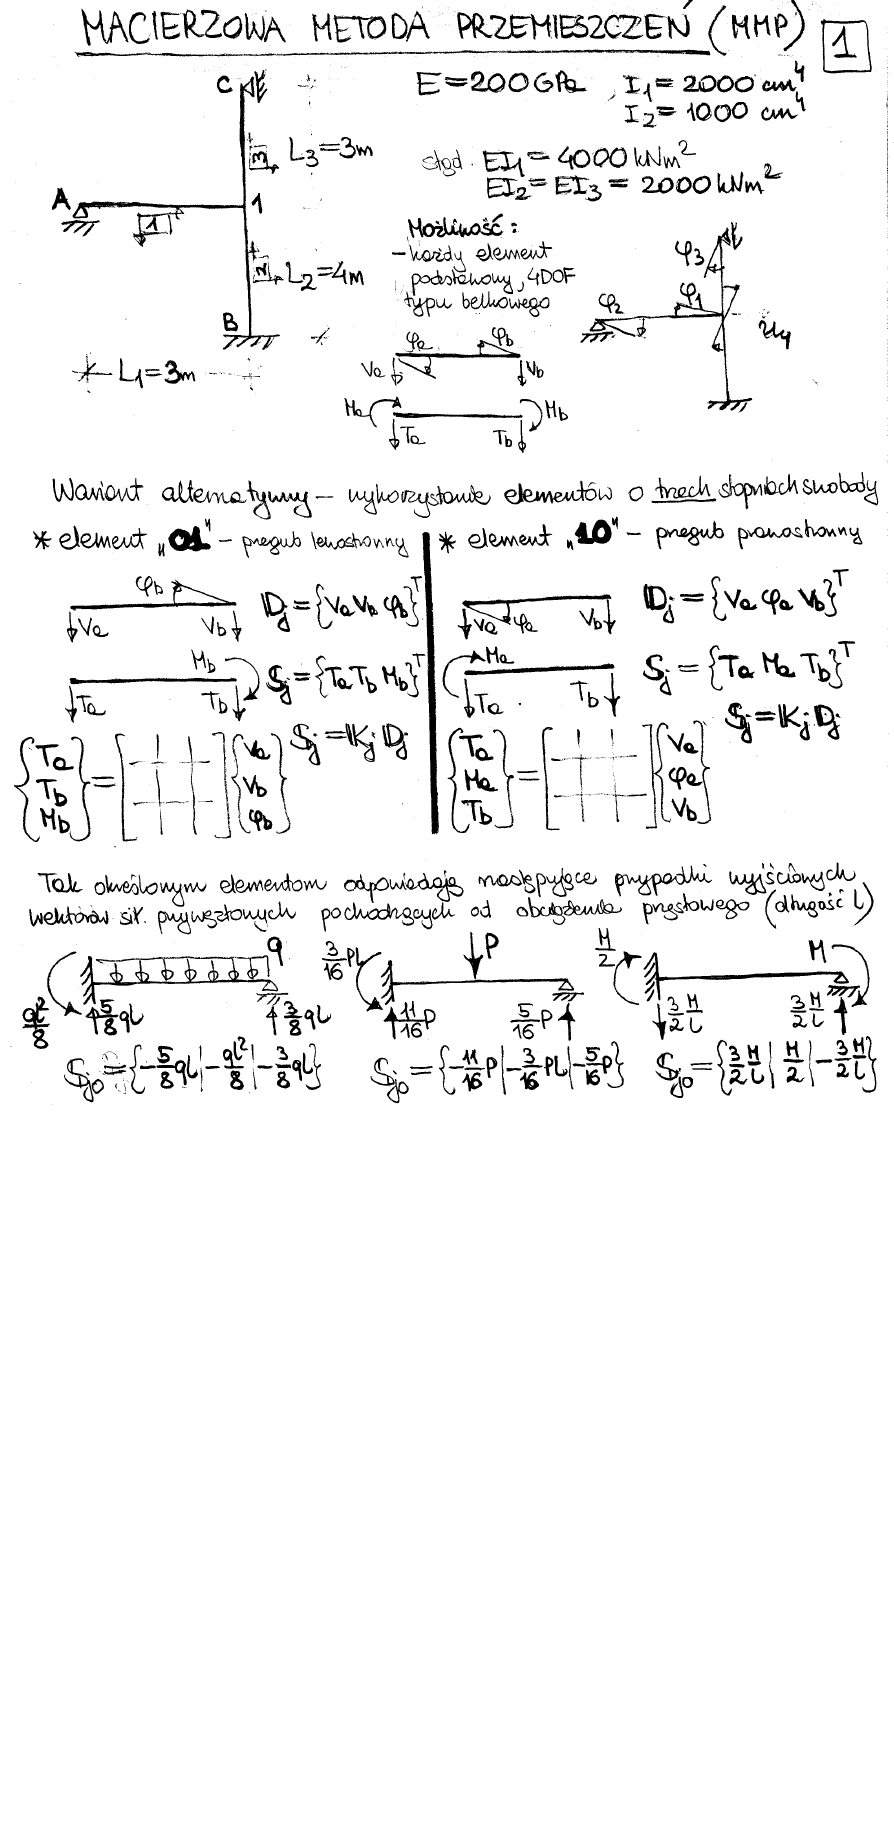 MACIERZOWA METODA PRZEMIESZCZEŃ (MMP) 1
C
E = 200 GPa, I₁ = 2000 cm⁴
I₂ = 1000 cm⁴
3 L₃ = 3m
stąd EI₁ = 4000 kNm²
EI₂ = EI₃ = 2000 kNm²
A 1 1
Możliwość:
- każdy element
podstawowy, 4DOF
typu belkowego
2 L₂ = 4m
B
L₁ = 3m
φ₃
φ₂ φ₁ u₄
φa φb
Va Vb
Ma Mb
Ta Tb
Wariant alternatywny – wykorzystanie elementów o trzech stopniach swobody
* element „01" – przegub lewostronny
φb
Va Vb
Dj = {Va Vb φb}ᵀ
Mb
Ta Tb
Sj = {Ta Tb Mb}ᵀ
Sj = Kj Dj
{Ta Tb Mb} = [ ] {Va Vb φb}
* element „10" – przegub prawostronny
Va φa Vb
Dj = {Va φa Vb}ᵀ
Ma
Ta Tb
Sj = {Ta Ma Tb}ᵀ
Sj = Kj Dj
{Ta Ma Tb} = [ ] {Va φa Vb}
Tak określonym elementom odpowiadają następujące przypadki wyjściowych
wektorów sił przywęzłowych pochodzących od obciążenia przęsłowego (długość l)
q
ql²/8 5/8 ql 3/8 ql
Sjo = {-5/8 ql | -ql²/8 | -3/8 ql}
3/16 PL P
11/16 P 5/16 P
Sjo = {-11/16 P | -3/16 PL | -5/16 P}
M/2 M
3/2 M/l 3/2 M/l
Sjo = {3/2 M/l | M/2 | -3/2 M/l}